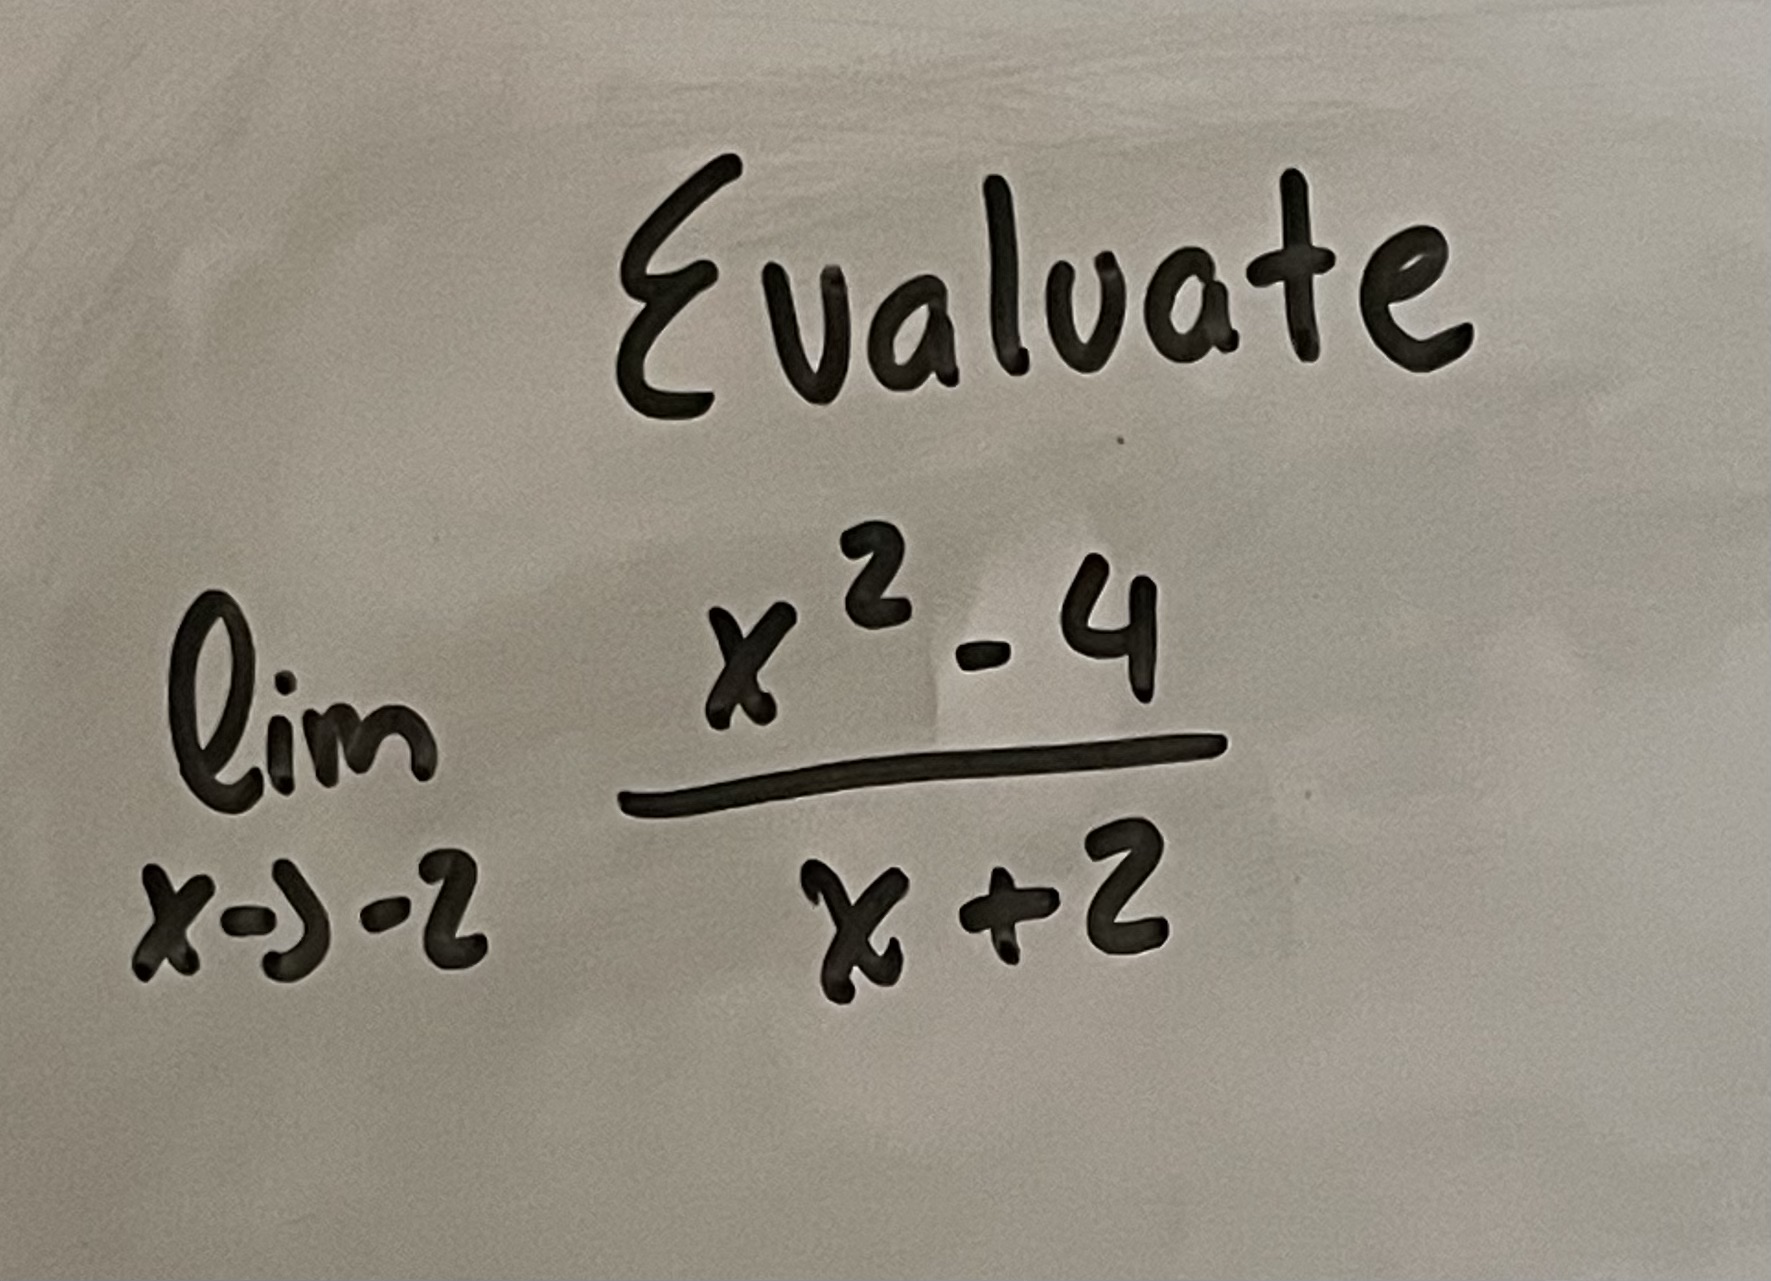 Evaluate
lim x² - 4
x→-2 x + 2